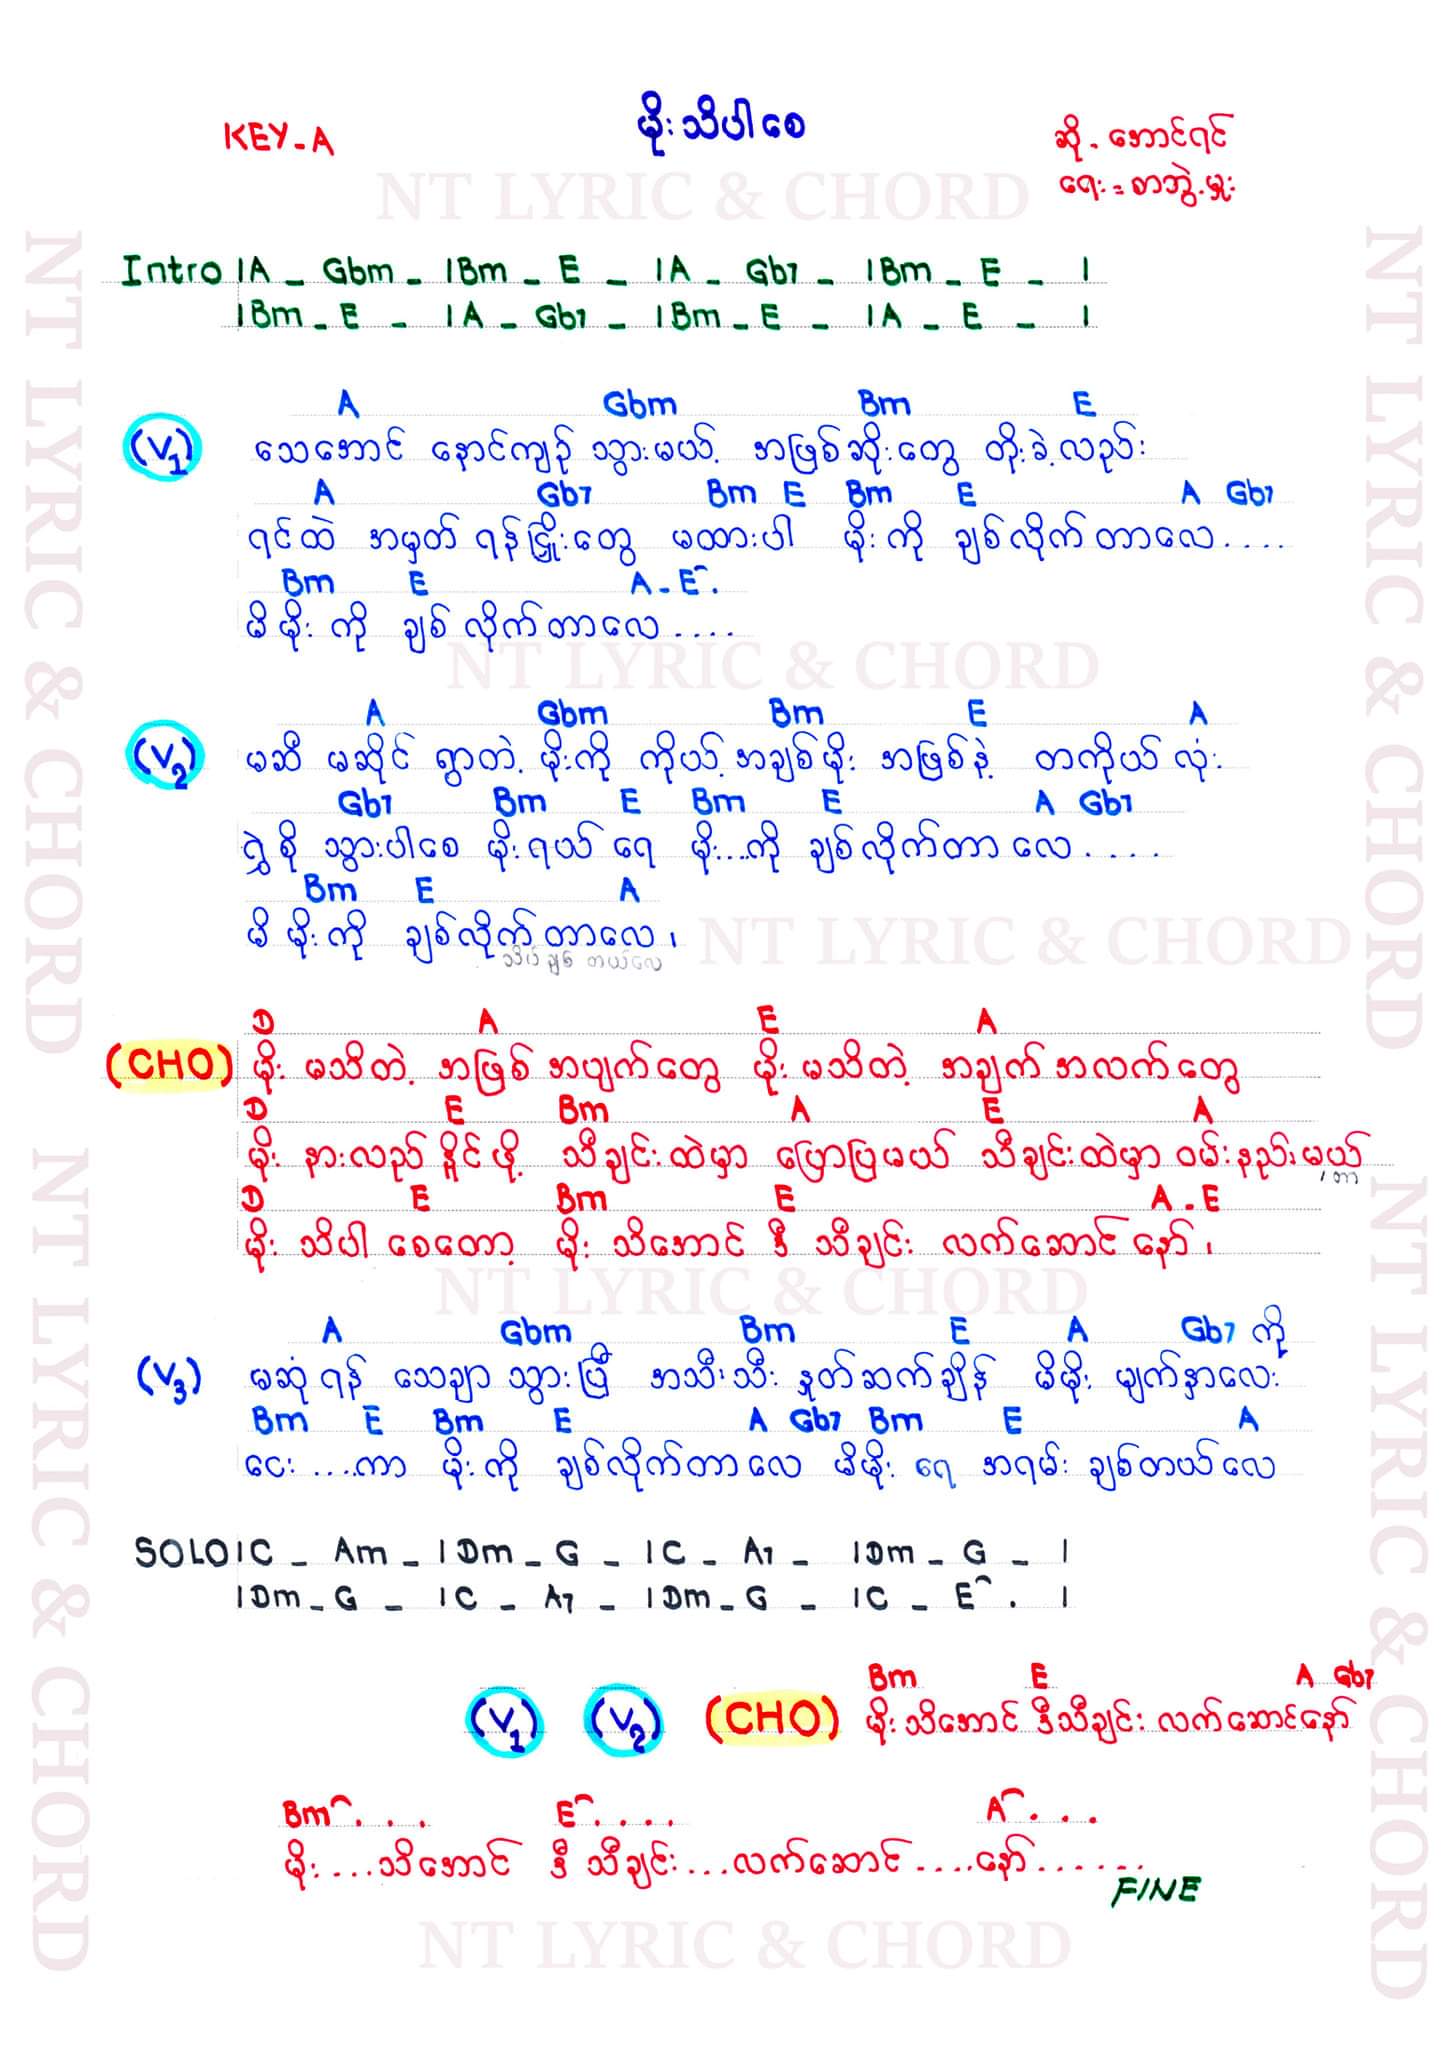 KEY-A
မိုးသိပါစေ
ဆို - အောင်ရင်
ရေး = စာဘွဲ့မှူး
NT LYRIC & CHORD
Intro |A _ Gbm _ |Bm _ E _ |A _ Gb7 _ |Bm _ E _ |
|Bm _ E _ |A _ Gb7 _ |Bm _ E _ |A _ E _ |
A Gbm Bm E
(V1) သေအောင် နောင်ကျဉ် သွားမယ့် အဖြစ်ဆိုးတွေ တိုးခဲ့လည်း
A Gb7 Bm E Bm E A Gb7
ရင်ထဲ အမှတ် ရန်ငြှိုးတွေ မထားပါ မိုးကို ချစ်လိုက်တာလေ....
Bm E A - E .
မိမိုး ကို ချစ်လိုက်တာလေ....
NT LYRIC & CHORD
A Gbm Bm E A
(V2) မဆီ မဆိုင် ရွာတဲ့ မိုးကို ကိုယ့်အချစ်မိုး အဖြစ်နဲ့ တကိုယ်လုံး
Gb7 Bm E Bm E A Gb7
ရွှဲစို သွားပါစေ မိုးရယ် ရေ မိုး...ကို ချစ်လိုက်တာ လေ....
Bm E A
မိ မိုးကို ချစ်လိုက်တာလေ၊
သိပ်ချစ် တယ်လေ
NT LYRIC & CHORD
D A E A
(CHO) မိုး မသိတဲ့ အဖြစ် အပျက်တွေ မိုး မသိတဲ့ အချက်အလက်တွေ
D E Bm A E A
မိုး နားလည် နိူင်ဖို့ သီချင်းထဲမှာ ပြောပြမယ် သီချင်းထဲမှာ ဝမ်းနည်းမယ်
တာ
D E Bm E A - E
မိုး သိပါ စေတော့ မိုး သိအောင် ဒီ သီချင်း လက်ဆောင်နော်၊
NT LYRIC & CHORD
A Gbm Bm E A Gb7 ကို
(V3) မဆုံရန် သေချာ သွားပြီ အသီးသီး နှုတ်ဆက်ချိန် မိမိုး မျက်နှာလေး
Bm E Bm E A Gb7 Bm E A
ငေး....ကာ မိုးကို ချစ်လိုက်တာလေ မိမိုး ရေ အရမ်းချစ်တယ်လေ
SOLO |C _ Am _ |Dm _ G _ |C _ A7 _ |Dm _ G _ |
|Dm _ G _ |C _ A7 _ |Dm _ G _ |C _ E . |
Bm E A Gb7
(V1) (V2) (CHO) မိုးသိအောင် ဒီသီချင်း လက်ဆောင်နော်
Bm . . . E . . . . A . . .
မိုး....သိအောင် ဒီ သီချင်း...လက်ဆောင်....နော်.......
FINE
NT LYRIC & CHORD
NT LYRIC & CHORD
NT LYRIC & CHORD
NT LYRIC & CHORD
NT LYRIC & CHORD